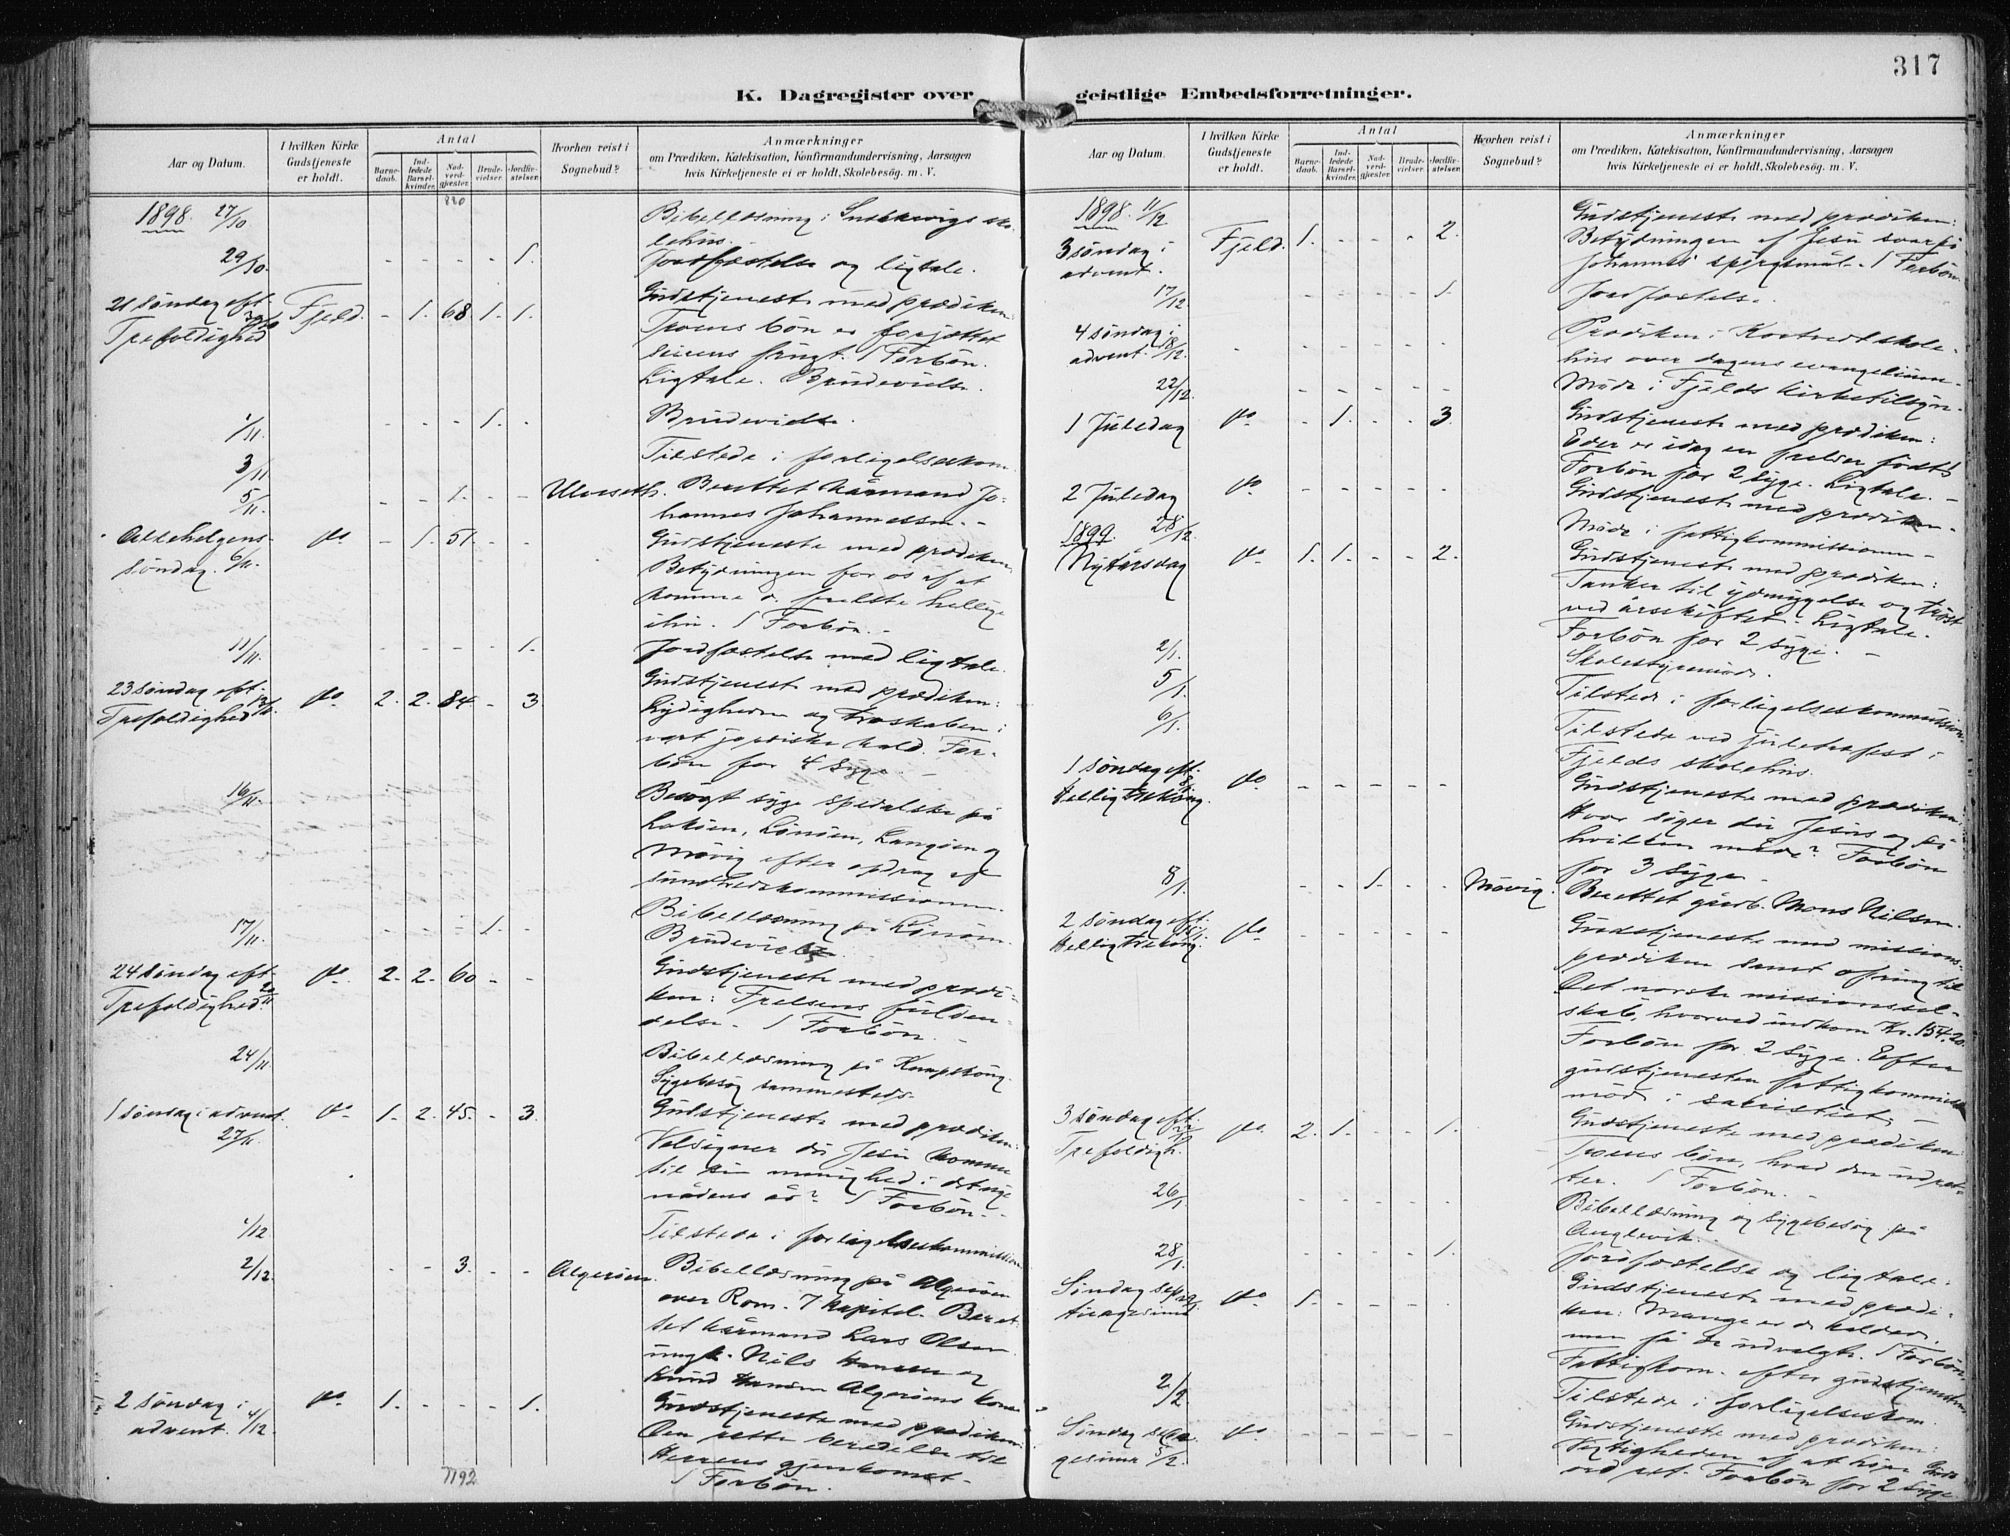 317
K. Dagregister over geistlige Embedsforretninger.
Aar og Datum.
I hvilken Kirke Gudstjeneste er holdt.
Antal
Barnedaab.
Indledede Barselkvinder.
Nadverdgjester.
Brudevielser.
Jordfæstelser.
Hvorhen reist i Sognebud?
Anmærkninger
om Prædiken, Katekisation, Konfirmandundervisning, Aarsagen
hvis Kirketjeneste ei er holdt, Skolebesøg. m. V.
820
1898. 27/10 Bibellæsning i Snekkevigs sko-
lehus.
29/10. - - - - 1. Jordfæstelse og ligtale.
21 søndag eft. Trefoldighed 30/10 Fjeld. - 1. 68 1. 1. Gudstjeneste med prædiken:
Troens bøn er forjættet
seierens frugt. 1 Forbøn.
Ligtale. Brudevielse.
1/11. - - - 1. - Brudevielse.
3/11 Tilstede i forligelseskom.
5/11. - - 1. - - Ulveseth. Berettet kårmand Jo-
hannes Johannessen. -
Allehelgens- søndag. 6/11. do - 1. 51. - - Gudstjeneste med prædiken
Betydningen for os af at
komme de frelste hellige
ihu. 1 Forbøn. -
11/11. - - - - 1. Jordfæstelse med ligtale.
23 søndag eft. Trefoldighed 13/11. do 2. 2. 84. - 3. Gudstjeneste med prædiken:
Lydigheden og troskaben i
vort jordiske kald. For-
bøn for 4 syge. -
16/11. Besøgt syge spedalske på
Lokøen, Lønøen, Langøen og
Møvig efter opdrag af
sundhedskommissionen.
Bibellæsning på Lønøen.
17/11. - - - 1. - Brudevielse.
24 søndag eft. Trefoldighed 20/11. do 2. 2. 60 - - Gudstjeneste med prædi-
ken: Frelsens fulden-
delse. 1 Forbøn. -
24/11. Bibellæsning på
Sygebesøg sammesteds.
1 søndag i advent. 27/11. do 1. 2. 45. - 3. Gudstjeneste med prædiken:
Velsigner du Jesu komme
til sin menighed i det nye
nådens år? 1 Forbøn. -
1/12 Tilstede i forligelseskommission
2/12. - - 3. - - Algerøen. Bibellæsning på Algerøen
over Rom. 7 kapitel. Beret-
tet kårmand Lars Olsen
ungk. Nils Hansen og
Knud Hansen Algerøens kone
2 søndag i advent. 4/12 do 1. - - - 1. Gudstjeneste med prædiken:
Den rette beredelse til
Herrens gjenkomst -
1 Forbøn.
1192
Aar og Datum.
I hvilken Kirke Gudstjeneste er holdt.
Antal
Barnedaab.
Indledede Barselkvinder.
Nadverdgjester.
Brudevielser.
Jordfæstelser.
Hvorhen reist i Sognebud?
Anmærkninger
om Prædiken, Katekisation, Konfirmandundervisning, Aarsagen
hvis Kirketjeneste ei er holdt, Skolebesøg. m. V.
1898. 11/12 3 søndag i advent. Fjeld. 1. - - - 2. Gudstjeneste med prædiken:
Betydningen af Jesu svar på
Johannes' spørgsmål. 1 Forbøn.
17/12. - - - - 1. Jordfæstelse.
4 søndag i advent. 18/12. - - - - - Prædiken i Kortvedt skole-
hus over dagens evangelium. -
22/12. - - - - - Møde i Fjelds kirketilsyn.
1 Juledag do - 1. - - 3. Gudstjeneste med prædiken:
Eder er idag en frelser født!
Forbøn for 2 syge. Ligtale. -
2 Juledag do - - - - - Gudstjeneste med prædiken. -
28/12. Møde i fattigkommissionen -
1899. Nytårsdag do 1. 1. - - 2. Gudstjeneste med prædiken:
Tanker til ydmygelse og trøst
ved årsskiftet. Ligtale.
Forbøn for 2 syge. -
2/1. Skolestyremøde.
5/1. Tilstede i forligelseskommission.
6/1. Tilstede ved juletræfest i
Fjelds skolehus.
1 søndag eft. Helligtrekong. 8/1 do - - - - - Gudstjeneste med prædiken:
Hvor søger du Jesus og på
hvilken måde? Forbøn
for 3 syge. -
8/1. - - 1. - - Møvig. Berettet gårdb. Mons Nilsen
2 søndag eft. Helligtrekong. 15/1 do - - - - - Gudstjeneste med missions-
prædiken samt ofring til
Det norske missionssel-
skab, hvorved indkom Kr. 154.20.
Forbøn for 2 syge. Efter
gudstjenesten fattigkommiss.
møde i sakristiet.
3 søndag eft. Trefoldigh. 22/1 do 2. 1. - - 1. Gudstjeneste med prædiken:
Troens bøn, hvad den udret-
ter. 1 Forbøn. -
26/1. - - - - - Bibellæsning og sygebesøg på
Anglevik.
28/1. - - - - 1. Jordfæstelse og ligtale.
Søndag sep- tuagesima 29/1. do 1. - - - - Gudstjeneste med prædi-
ken: Mange er de kaldede,
men få de udvalgte. 1 Forbøn.
Fattigkom. efter gudstjenesten.
2/2 Tilstede i forligelseskom.
Søndag sexa- gesima 5/2. do - - - - - Gudstjeneste med prædiken:
Vigtigheden af at høre Guds
ord ret. Forbøn for 2 syge.